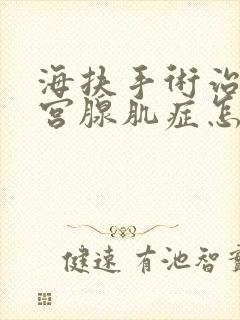 海扶手術治
宮腺肌症怎
健速 有池智